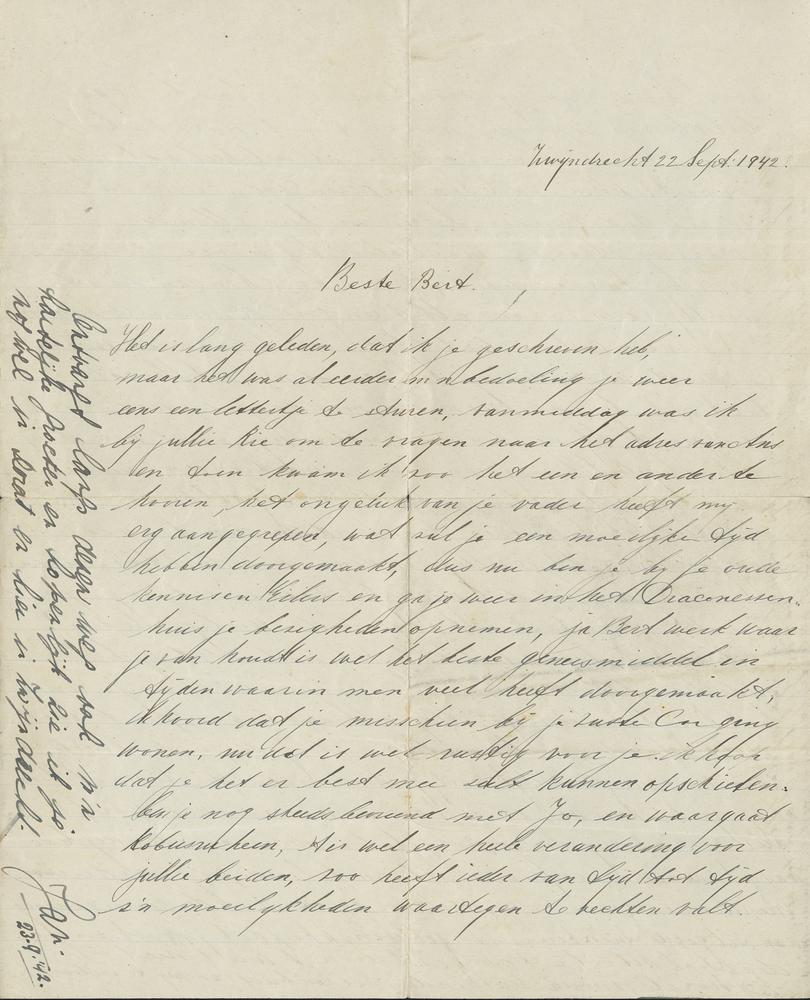 Zwijndrecht 22 Sept. 1942.
Beste Bert.
Het is lang geleden, dat ik je geschreven heb,
maar het was al eerder m'n bedoeling je weer
eens een lettertje te sturen, vanmiddag was ik
bij jullie Rie om te vragen naar het adres van Ans
en toen kwam ik zoo het een en ander te
hooren, het ongeluk van je vader heeft mij
erg aangegrepen, wat zul je een moeilijke tijd
hebben doorgemaakt, dus nu ben je bij je oude
kennissen Eilers en ga je weer in het Diaconessen-
huis je bezigheden opnemen, ja Bert werk waar
je van houdt is wel het beste geneesmiddel in
tijden waarin men veel heeft doorgemaakt,
ik hoord dat je misschien bij je zuster Cor ging
wonen, nu dat is wel rustig voor je. ik hoop
dat je het er best mee zult kunnen opschieten.
ben je nog steeds bevriend met Jo, en waar gaat
Kobus heen, 't is wel een heele verandering voor
jullie beiden, zoo heeft ieder van tijd tot tijd
z'n moeilijkheden waartegen te vechten valt.
Ontvangt langs dezen weg ook m'n
hartelijke groeten en hopenlijk zie ik je
nog wel in dorat er hier in Zwijndrecht.
Jan.
23-9-'42.